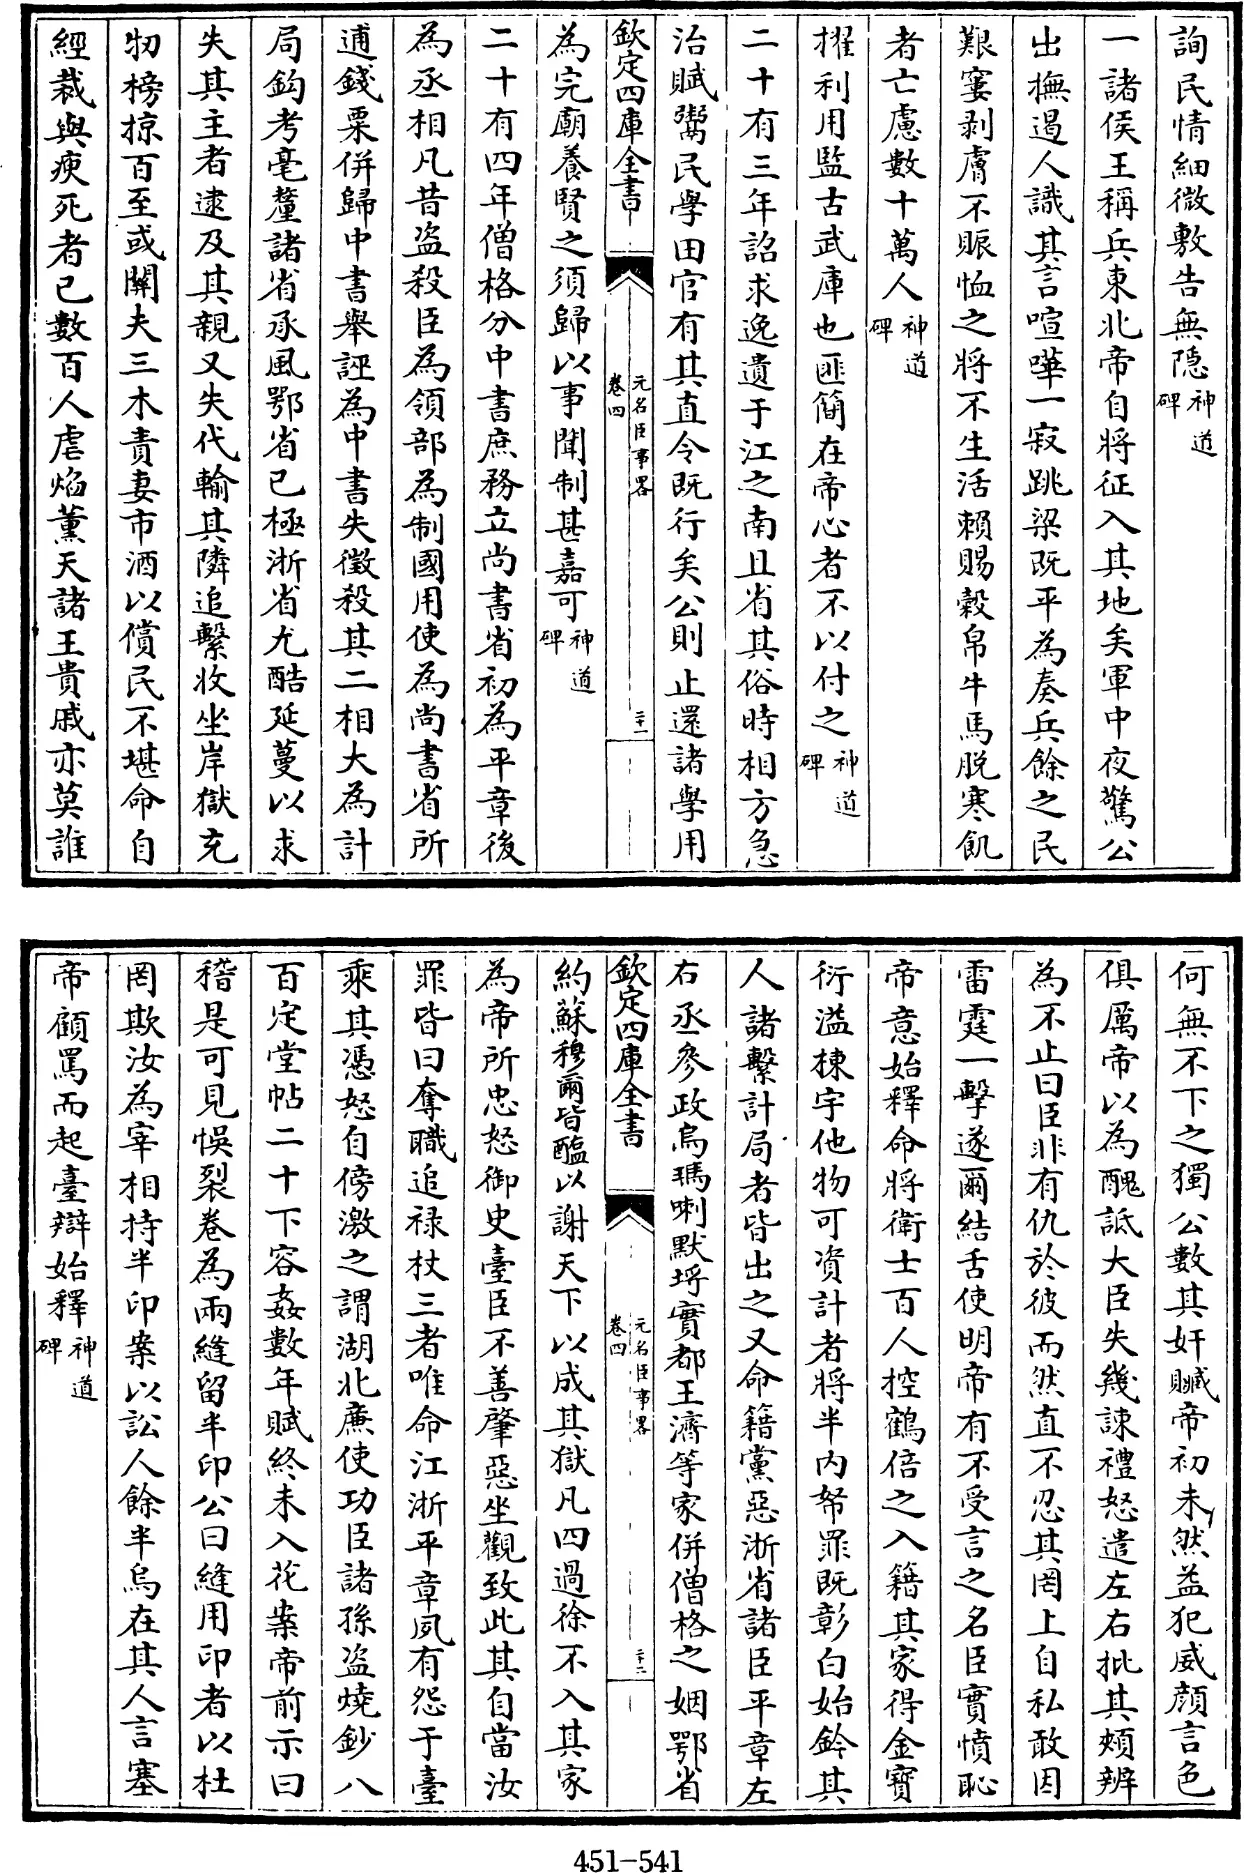 詢民情細微敷告無隱神道碑
一諸侯王稱兵東北帝自將征入其地矣軍中夜驚公
出撫遏人識其言喧嘩一寂跳梁既平為奏兵餘之民
艱窶剥膚不賑恤之將不生活賴賜穀帛牛馬脱寒飢
者亡慮數十萬人神道碑
擢利用監古武庫也匪簡在帝心者不以付之神道碑
二十有三年詔求逸遺于江之南且省其俗時相方急
治賦鬻民學田官有其直令既行矣公則止還諸學用
欽定四庫全書 元名臣事畧 卷四 二十一
為完廟養賢之須歸以事聞制甚嘉可神道碑
二十有四年僧格分中書庶務立尚書省初為平章後
為丞相凡昔盗殺臣為領部為制國用使為尚書省所
逋錢粟併歸中書舉誣為中書失徵殺其二相大為計
局鈎考毫釐諸省承風鄂省已極浙省尤酷延蔓以求
失其主者逮及其親又失代輸其隣追繫收坐岸獄充
牣榜掠百至或闗夫三木責妻市酒以償民不堪命自
經裁與瘐死者已數百人虐焰薰天諸王貴戚亦莫誰
何無不下之獨公數其奸贓帝初未然益犯威顔言色
俱厲帝以為醜詆大臣失幾諫禮怒遣左右批其頰辨
為不止曰臣非有仇於彼而然直不忍其罔上自私敢因
雷霆一擊遂爾結舌使明帝有不受言之名臣實憤恥
帝意始釋命將衛士百人控鶴倍之入籍其家得金寶
衍溢棟宇他物可資計者將半内帑罪既彰白始鈐其
人諸繫計局者皆出之又命籍黨惡浙省諸臣平章左
右丞參政烏瑪喇默埒實都王濟等家併僧格之姻鄂省
欽定四庫全書 元名臣事畧 卷四 二十二
約蘇穆爾皆醢以謝天下以成其獄凡四過徐不入其家
為帝所忠怒御史臺臣不善肇惡坐觀致此其自當汝
罪皆曰奪職追禄杖三者唯命江浙平章夙有怨于臺
乘其憑怒自傍激之謂湖北㢘使功臣諸孫盗燒鈔八
百定堂帖二十下容姦數年賦終未入花案帝前示曰
稽是可見悞裂卷為兩縫留半印公曰縫用印者以杜
罔欺汝為宰相持半印案以訟人餘半烏在其人言塞
帝顧罵而起臺辯始釋神道碑
451-541